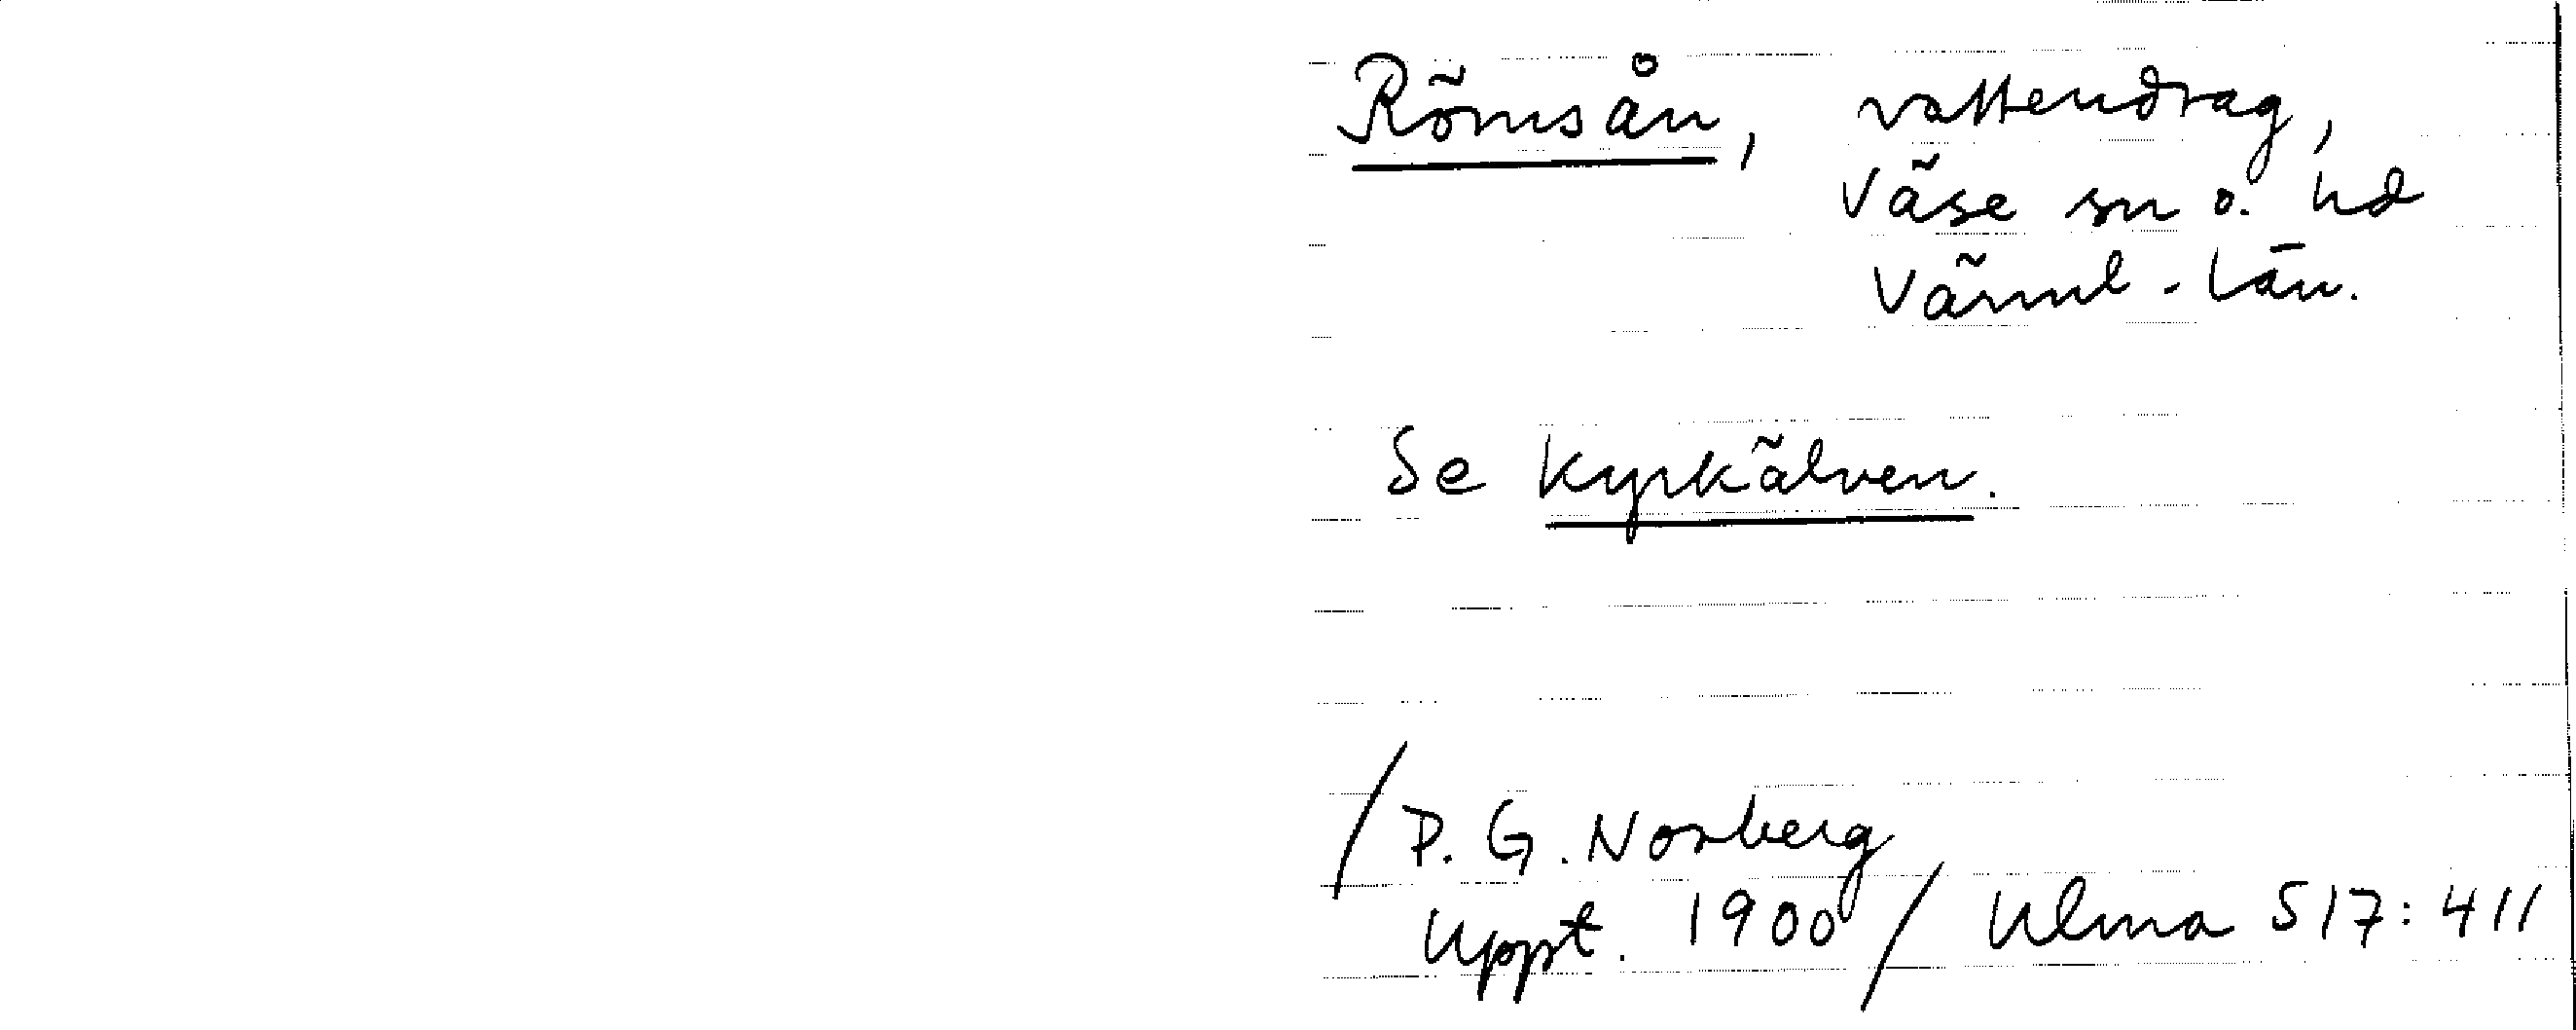 Römsån, vattendrag,
Väse sn o. hd
Värml. län.
Se Kyrkälven.
/P. G. Norberg
Uppt. 1900/ Ulma 517:411